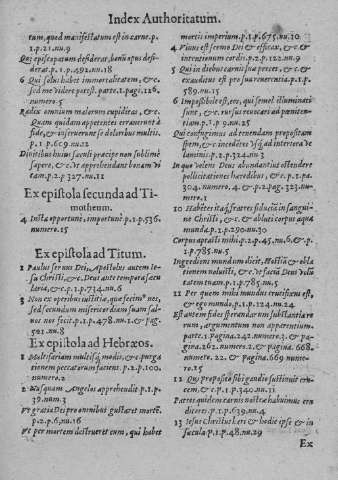 Index Authoritatum.
tum, quod manifestatum est in carne. p.
1. p. 21. nu. 9
Qui episcopatum desiderat, bonũ opus desi-
derat. p. 1. 492. nu. 18
6 Qui solus habet immortalitatem, &c.
sed me videre potest. parte. 1. pagi. 126.
numero. 5
Radix omnium malorum cupiditas, &c.
Quam quidam appetentes erraverunt à
fide, & inseruerunt se doloribus multis.
p. 1 p. 619. nu. 12
Divitibus huius saeculi praecipe non sublime
sapere, &c. vt apprehendant bonam vi
tam. p. 2. p. 327. nu. 11
Ex epistola secunda ad Ti-
motheum.
4 Insta opportunè, importunè p. 1 p. 536.
numero. 15
Ex epistola ad Titum.
1 Paulus servus Dei, Apostolus autem Ie-
su Christi, &c. Deus ante tempora saecu
laria, &c. p. 1. p. 734. nu. 6
3 Non ex operibus iustitiae, quae fecimus nos,
sed secundum misericordiam suam sal-
vos nos fecit. p. 1. p. 478. nu. 1. & pag.
521. nu. 8
Ex epistola ad Hebraeos.
1 Multifariam multisq; modis, &c. purga
tionem peccatorum faciens. p. 2. p. 100.
numero. 2
2 Nusquam Angelos apprehendit. p. 1. p.
39. num. 3
vt gratia Dei pro omnibus gustaret mortẽ.
p. 2. p. 6. nu. 16
vt per mortem destrueret eum, qui habet
mortis imperium. p. 1. p. 675. nu. 30
4 Vivus est sermo Dei & efficax, &c. &
intentionum cordis. p. 2. p. 122. nu. 9
5 Qui in diebus carnis suae preces, &c. &
exauditus est pro sua reverentia. p. 1. p.
589. nu. 15
6 Impossibile est, eos, qui semel illuminati
sunt, &c. rursus revocari ad poeniten-
tiam. p. 1. p. 9. nu. 25
Qui confugimus ad tenendam propositam
spem, & c. incedere vsq; ad interiora ve
laminis. p. 2. p. 324. nu. 3
In quo volens Deus abundantius ostendere
pollicitationes haeredibus, & c. p. 2. pa.
304. numero. 4. & p. 2. pag. 323. nu-
mero. 1
10 Habẽtes itaq; fratres fiduciã in sangui-
ne Christi, &c. & abluti corpus aqua
munda. p. 1. p. 290. nu. 30
Corpus aptasti mihi. p. 2. p. 45. nu. 6. & p.
1. p. 785. nu. 5
Ingrediens mundum dicit, Hostiã & obla
tionem noluisti, &c. vt faciã Deus volũ
tatem tuam. p. 1. p. 785. nu. 5
11 Per quem mihi mundus crucifixus est,
& ego mundo. p. 1. p. 124. nu. 24
Est autem fides sperandarum substantia re
rum, argumentum non apparentium.
parte. 1. pagina. 242. numero. 3. & pa-
gina. 262. numero. 2. & pagina. 668.
numero. 22. & pagina. 669 nume-
ro. 15
12 Qui proposito sibi gaudio sustinuit cru-
cem, & c. p. 1. p. 340. nu. 11
Patres quidem carnis nostrae habuimus eru
ditores. p. 1. p. 639. nu. 4
13 Iesus Christus heri & hodie ipse & in
saecula. p. 1. p. 48. nu. 29
Ex